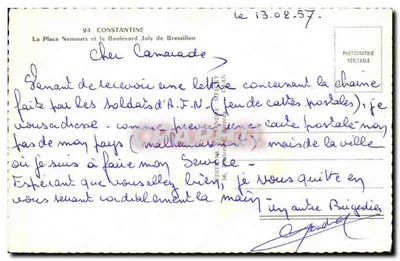 le 13.02.57.
24 CONSTANTINE
La Place Nemours et le Boulevard Joly de Bresillon
PHOTOGRAPHIE
VÉRITABLE
Cher Camarade,
Venant de recevoir une lettre concernant la chaine
faite par les soldats d'A.F.N. (jeu de cartes postales), je
vous adresse - comme preuve une carte postale non
pas de mon pays (malheureusement), mais de la ville
où je suis à faire mon Service -
Espérant que vous allez bien, je vous quitte en
vous serrant cordialement la main
un autre Brigadier